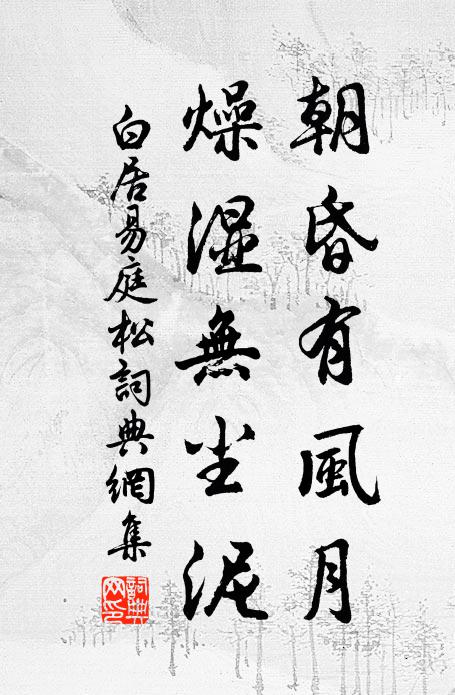 朝昏有風月
燥湿無尘泥
白居易庭松詞典網集
詞典网印